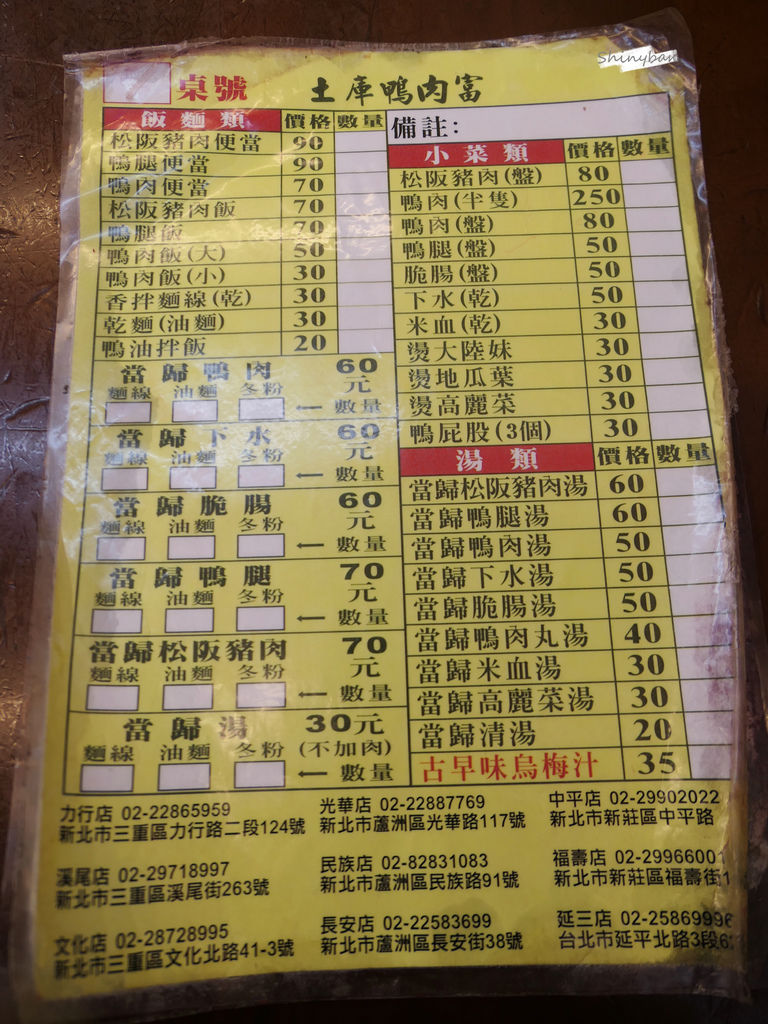 Shinyban
桌號 土庫鴨肉富
飯麵類 價格 數量
松阪豬肉便當 90
鴨腿便當 90
鴨肉便當 70
松阪豬肉飯 70
鴨腿飯 70
鴨肉飯(大) 50
鴨肉飯(小) 30
香拌麵線(乾) 30
乾麵(油麵) 30
鴨油拌飯 20
當歸鴨肉 60元
麵線 油麵 冬粉
←數量
當歸下水 60元
麵線 油麵 冬粉
←數量
當歸脆腸 60元
麵線 油麵 冬粉
←數量
當歸鴨腿 70元
麵線 油麵 冬粉
←數量
當歸松阪豬肉 70元
麵線 油麵 冬粉
←數量
當歸湯 30元
麵線 油麵 冬粉 (不加肉)
←數量
備註:
小菜類 價格 數量
松阪豬肉(盤) 80
鴨肉(半隻) 250
鴨肉(盤) 80
鴨腿(盤) 50
脆腸(盤) 50
下水(乾) 50
米血(乾) 30
燙大陸妹 30
燙地瓜葉 30
燙高麗菜 30
鴨屁股(3個) 30
湯類 價格 數量
當歸松阪豬肉湯 60
當歸鴨腿湯 60
當歸鴨肉湯 50
當歸下水湯 50
當歸脆腸湯 50
當歸鴨肉丸湯 40
當歸米血湯 30
當歸高麗菜湯 30
當歸清湯 20
古早味烏梅汁 35
力行店 02-22865959
新北市三重區力行路二段124號
光華店 02-22887769
新北市蘆洲區光華路117號
中平店 02-29902022
新北市新莊區中平路
溪尾店 02-29718997
新北市三重區溪尾街263號
民族店 02-82831083
新北市蘆洲區民族路91號
福壽店 02-29966001
新北市新莊區福壽街1
文化店 02-28728995
新北市三重區文化北路41-3號
長安店 02-22583699
新北市蘆洲區長安街38號
延三店 02-25869996
台北市延平北路3段6